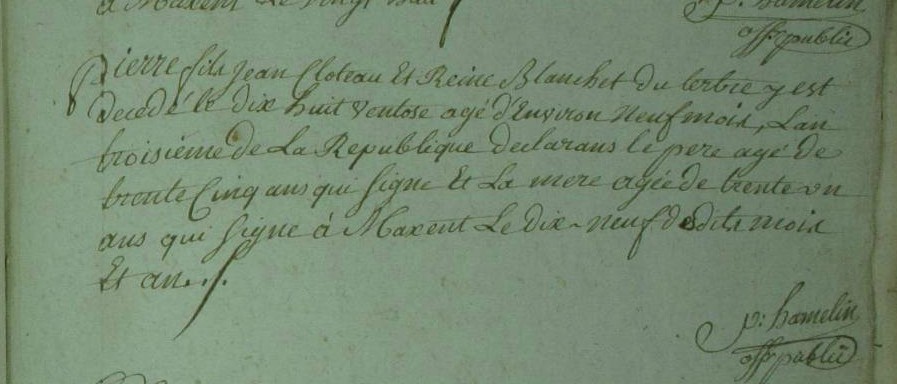 a Maxent Le vingt huit
p: hamelin
off. public
Pierre fils Jean Cloteau Et Reine Blanchet du tertre y est
decedé le dix huit ventose agé d'Environ Neuf mois, Lan
troisieme de La Republique declarans le pere agé de
trente Cinq ans qui signe Et La mere agée de trente un
ans qui signe à Maxent Le dix-neuf desdits mois
Et an...
p: hamelin
off. public